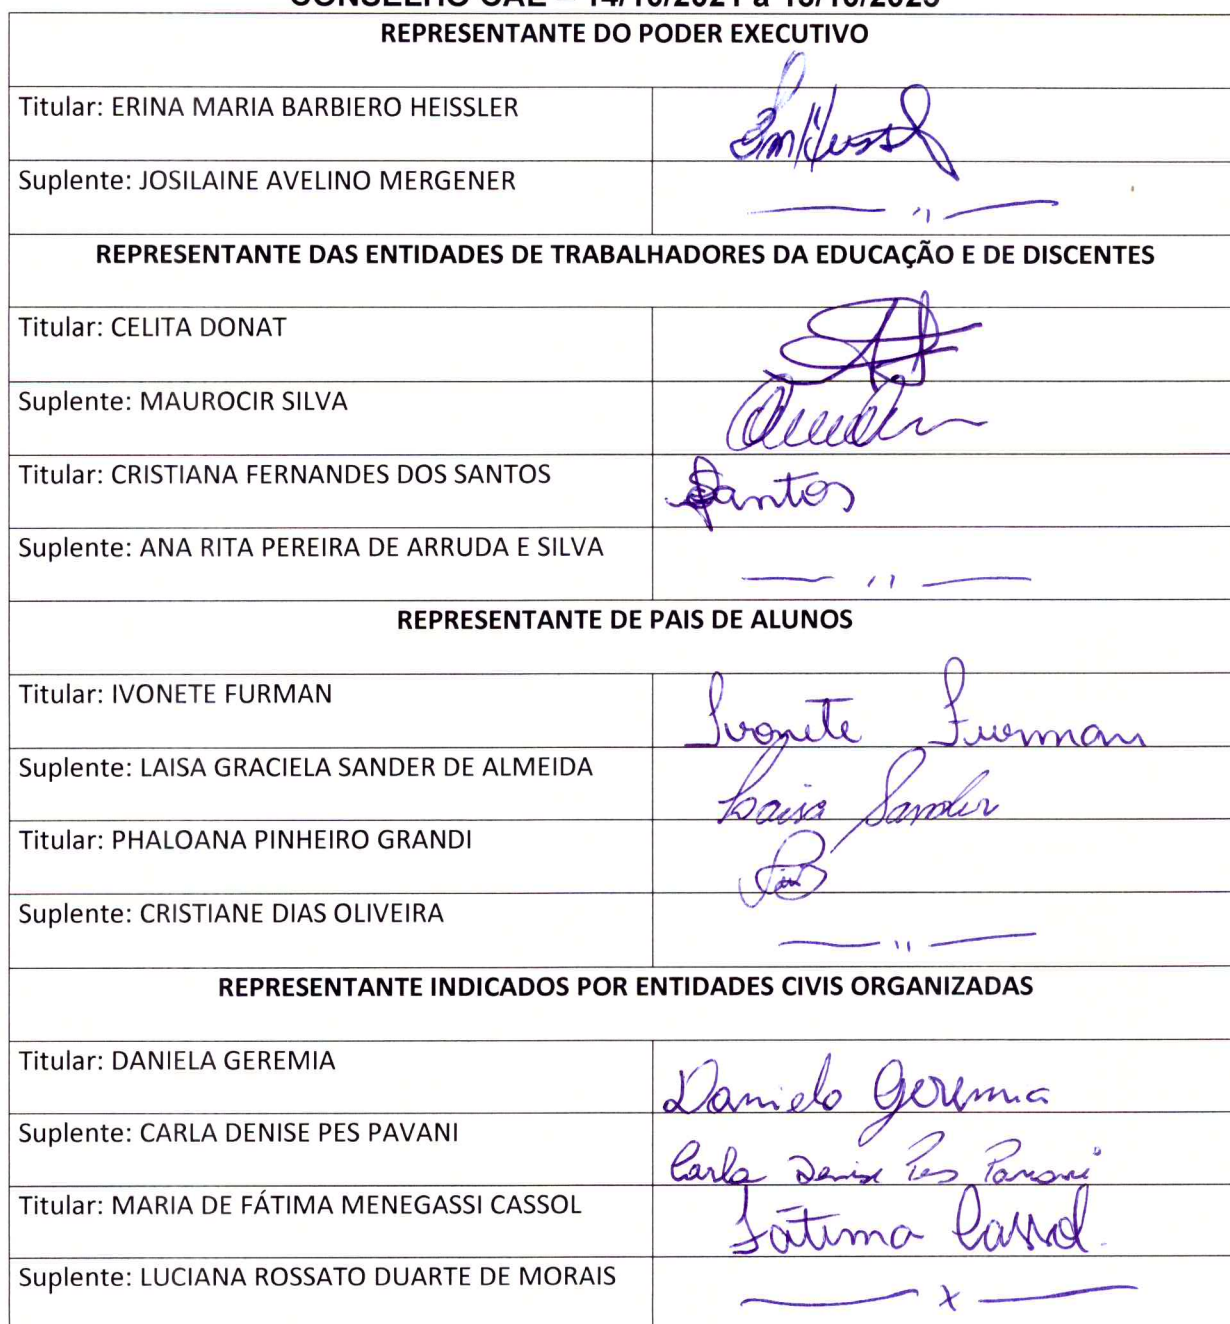 CONSELHO CAE – 14/10/2021 a 13/10/2025
REPRESENTANTE DO PODER EXECUTIVO
Titular: ERINA MARIA BARBIERO HEISSLER
Suplente: JOSILAINE AVELINO MERGENER
—— " ——
REPRESENTANTE DAS ENTIDADES DE TRABALHADORES DA EDUCAÇÃO E DE DISCENTES
Titular: CELITA DONAT
Suplente: MAUROCIR SILVA
Titular: CRISTIANA FERNANDES DOS SANTOS Santos
Suplente: ANA RITA PEREIRA DE ARRUDA E SILVA
—— " ——
REPRESENTANTE DE PAIS DE ALUNOS
Titular: IVONETE FURMAN Ivonete Furman
Suplente: LAISA GRACIELA SANDER DE ALMEIDA Laisa Sander
Titular: PHALOANA PINHEIRO GRANDI
Suplente: CRISTIANE DIAS OLIVEIRA
—— " ——
REPRESENTANTE INDICADOS POR ENTIDADES CIVIS ORGANIZADAS
Titular: DANIELA GEREMIA Daniela Geremia
Suplente: CARLA DENISE PES PAVANI Carla Denise Pes Pavani
Titular: MARIA DE FÁTIMA MENEGASSI CASSOL Fátima Cassol.
Suplente: LUCIANA ROSSATO DUARTE DE MORAIS
—— x ——